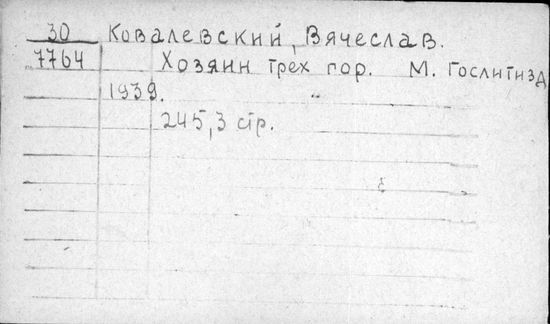 30 Ковалевский, Вячеслав.
7764 Хозяин трех гор. М. Гослитизд
1939.
245,3 стр.